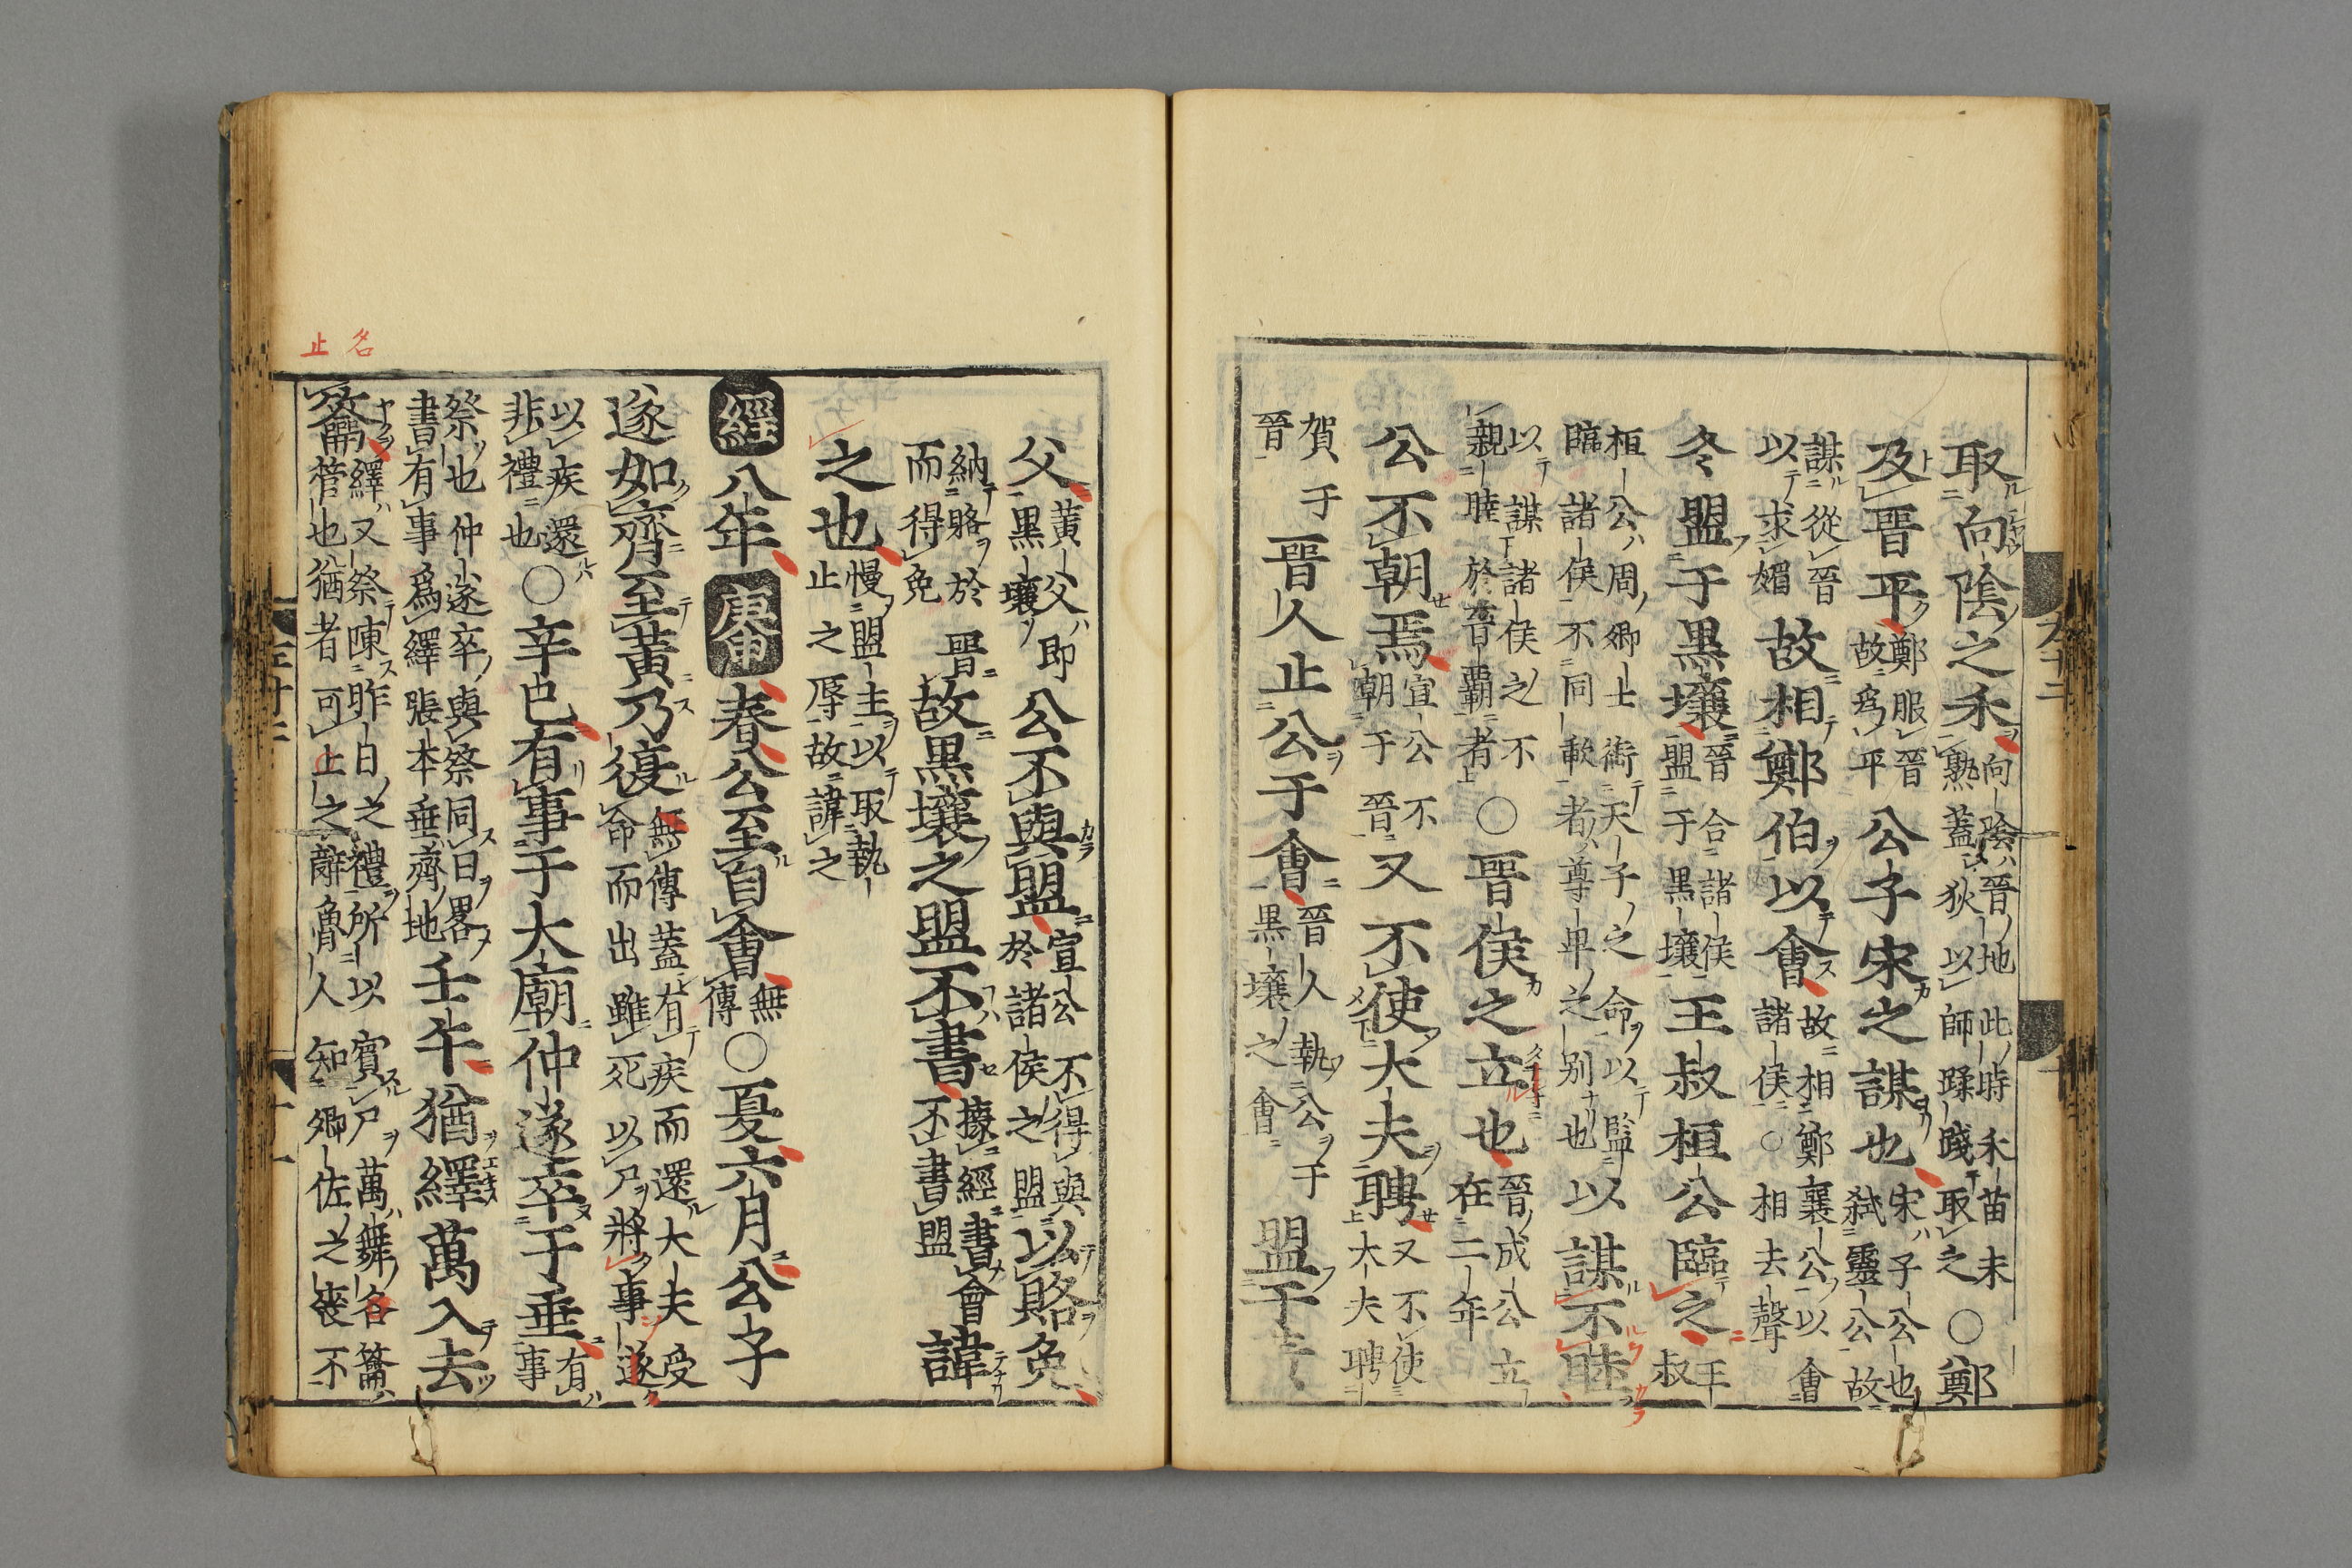 取向陰之禾向陰晉地此時禾苗未
熟蓋狄以師蹂踐取之〇鄭
及晉平鄭服晉
故爲平公子宋之謀也宋子公也
弑靈公故
謀從晉
以求媚故相鄭伯以會故相鄭襄公以會
諸侯〇相去聲
冬盟于黑壤晉合諸侯
盟于黑壤王叔桓公臨之王
叔
桓公周卿士銜天子之命以監
臨諸侯不同歃者尊卑之別也以謀不睦
以謀諸侯之不
親睦於晉霸者〇晉侯之立也晉成公立
在二年
公不朝焉宣公不
朝于晉又不使大夫聘又不使
大夫聘
賀于
晉晉人止公于會晉人執公于
黑壤之會盟于黃
父黃父即
黑壤公不與盟宣公不得與
於諸侯之盟以賂免
納賂於晉
而得免故黑壤之盟不書據經書會
不書盟諱
之也慢盟主以取執
止之辱故諱之
經八年庚申春公至自會無
傳〇夏六月公子
遂如齊至黃乃復無傳蓋有疾而還大夫受
命而出雖死以尸將事遂
以疾還
非禮也〇辛巳有事于大廟仲遂卒于垂有
事
祭也仲遂卒與祭同日畧
書有事爲繹張本垂齊地壬午猶繹萬入去
籥繹又祭陳昨日之禮所以賓尸萬舞名籥
管也猶者可止之辭魯人知卿佐之喪不
名
止